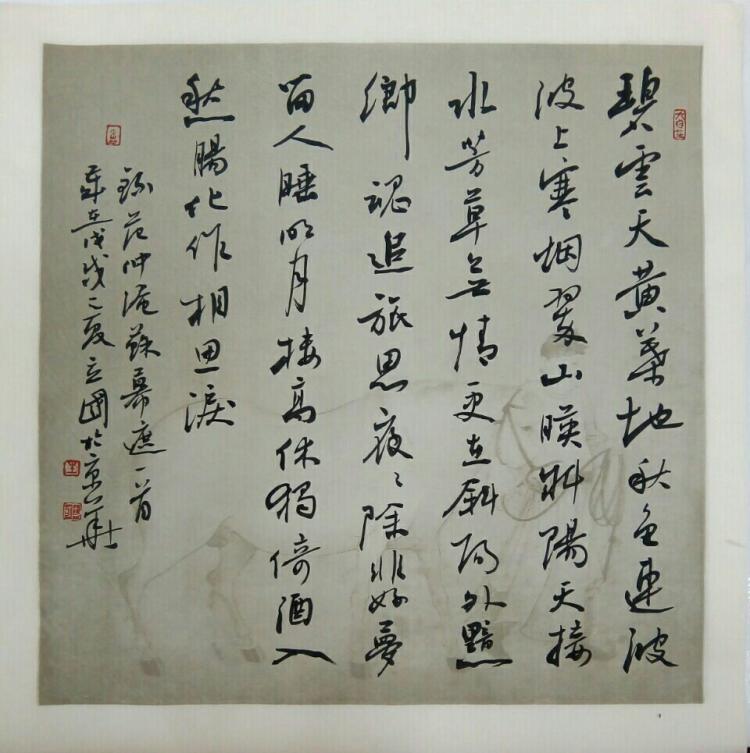 碧雲天黄葉地秋色連波
波上寒烟翠山暎斜陽天接
水芳草無情更在斜陽外黯
鄉魂追旅思夜〻除非好夢
留人睡明月樓高休獨倚酒入
愁腸化作相思淚
錄范仲淹蘇幕遮一首
歲在戊戌之夏立國於京華